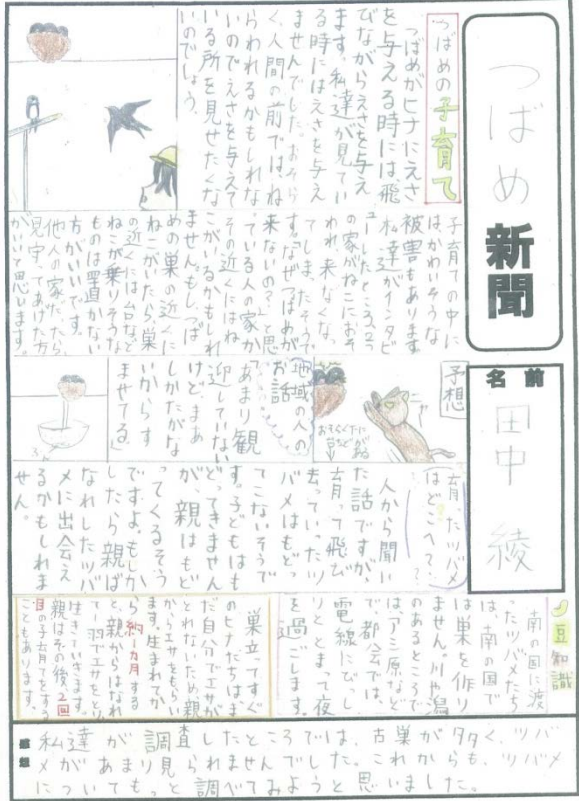 つばめ新聞
名前
田中 綾
つばめの子育て
つばめがヒナにえさ
を与える時には飛
びながらえさを与え
ます。私達が見てい
る時にはえさを与え
ませんでした。おそら
く、人間の前ではね
らわれるかもしれな
いのでえさを与えて
いる所を見せたくな
いのでしょう。
子育ての中に
はかわいそうな
被害もあります
私達がインタビ
ューしたところ、2つ
の家がねこにおそ
われ来なくな
ってしまったそうで
す。「なぜつばめが
来ないの?」と思
っている人の家か
その近くにはね
こがいるかもしれ
ません。もしつば
めの巣の近くに
ねこがいたら巣
の近くには台など
ねこが乗りそうな
ものは置かない
方がいいです。
他人の家だったら
見守ってあげた方
がいいと思います。
予想
地域の人の
お話
「あまり観
迎していない
けど、まあ
しかたがな
いからす
ませてる」
育ったツバメ
はどこへ??
人から聞い
た話ですが、
育って飛び
去っていったツ
バメはもどっ
てこないそうで
す。子どもはも
どってきません
が、親はもど
ってくるそう
ですよ。もしか
したら親ば
なれしたツバ
メに出会え
るかもしれま
せん。
豆知識
南の国に渡
ったツバメたち
は、南の国で
は巣を作り
ません。川や潟
のあるところで
は、アシ原など
で、都会では、
電線にびっし
りととまって夜
を過ごします。
巣立ってすぐ
のヒナたちはま
だ自分でエサが
とれないため親
からエサをもらい
ます。生まれてか
ら約1ヵ月する
と、親からはなれ
て一羽でエサをとり
生きていきます。
親はその後2回
目の子育てをする
こともあります。
感想